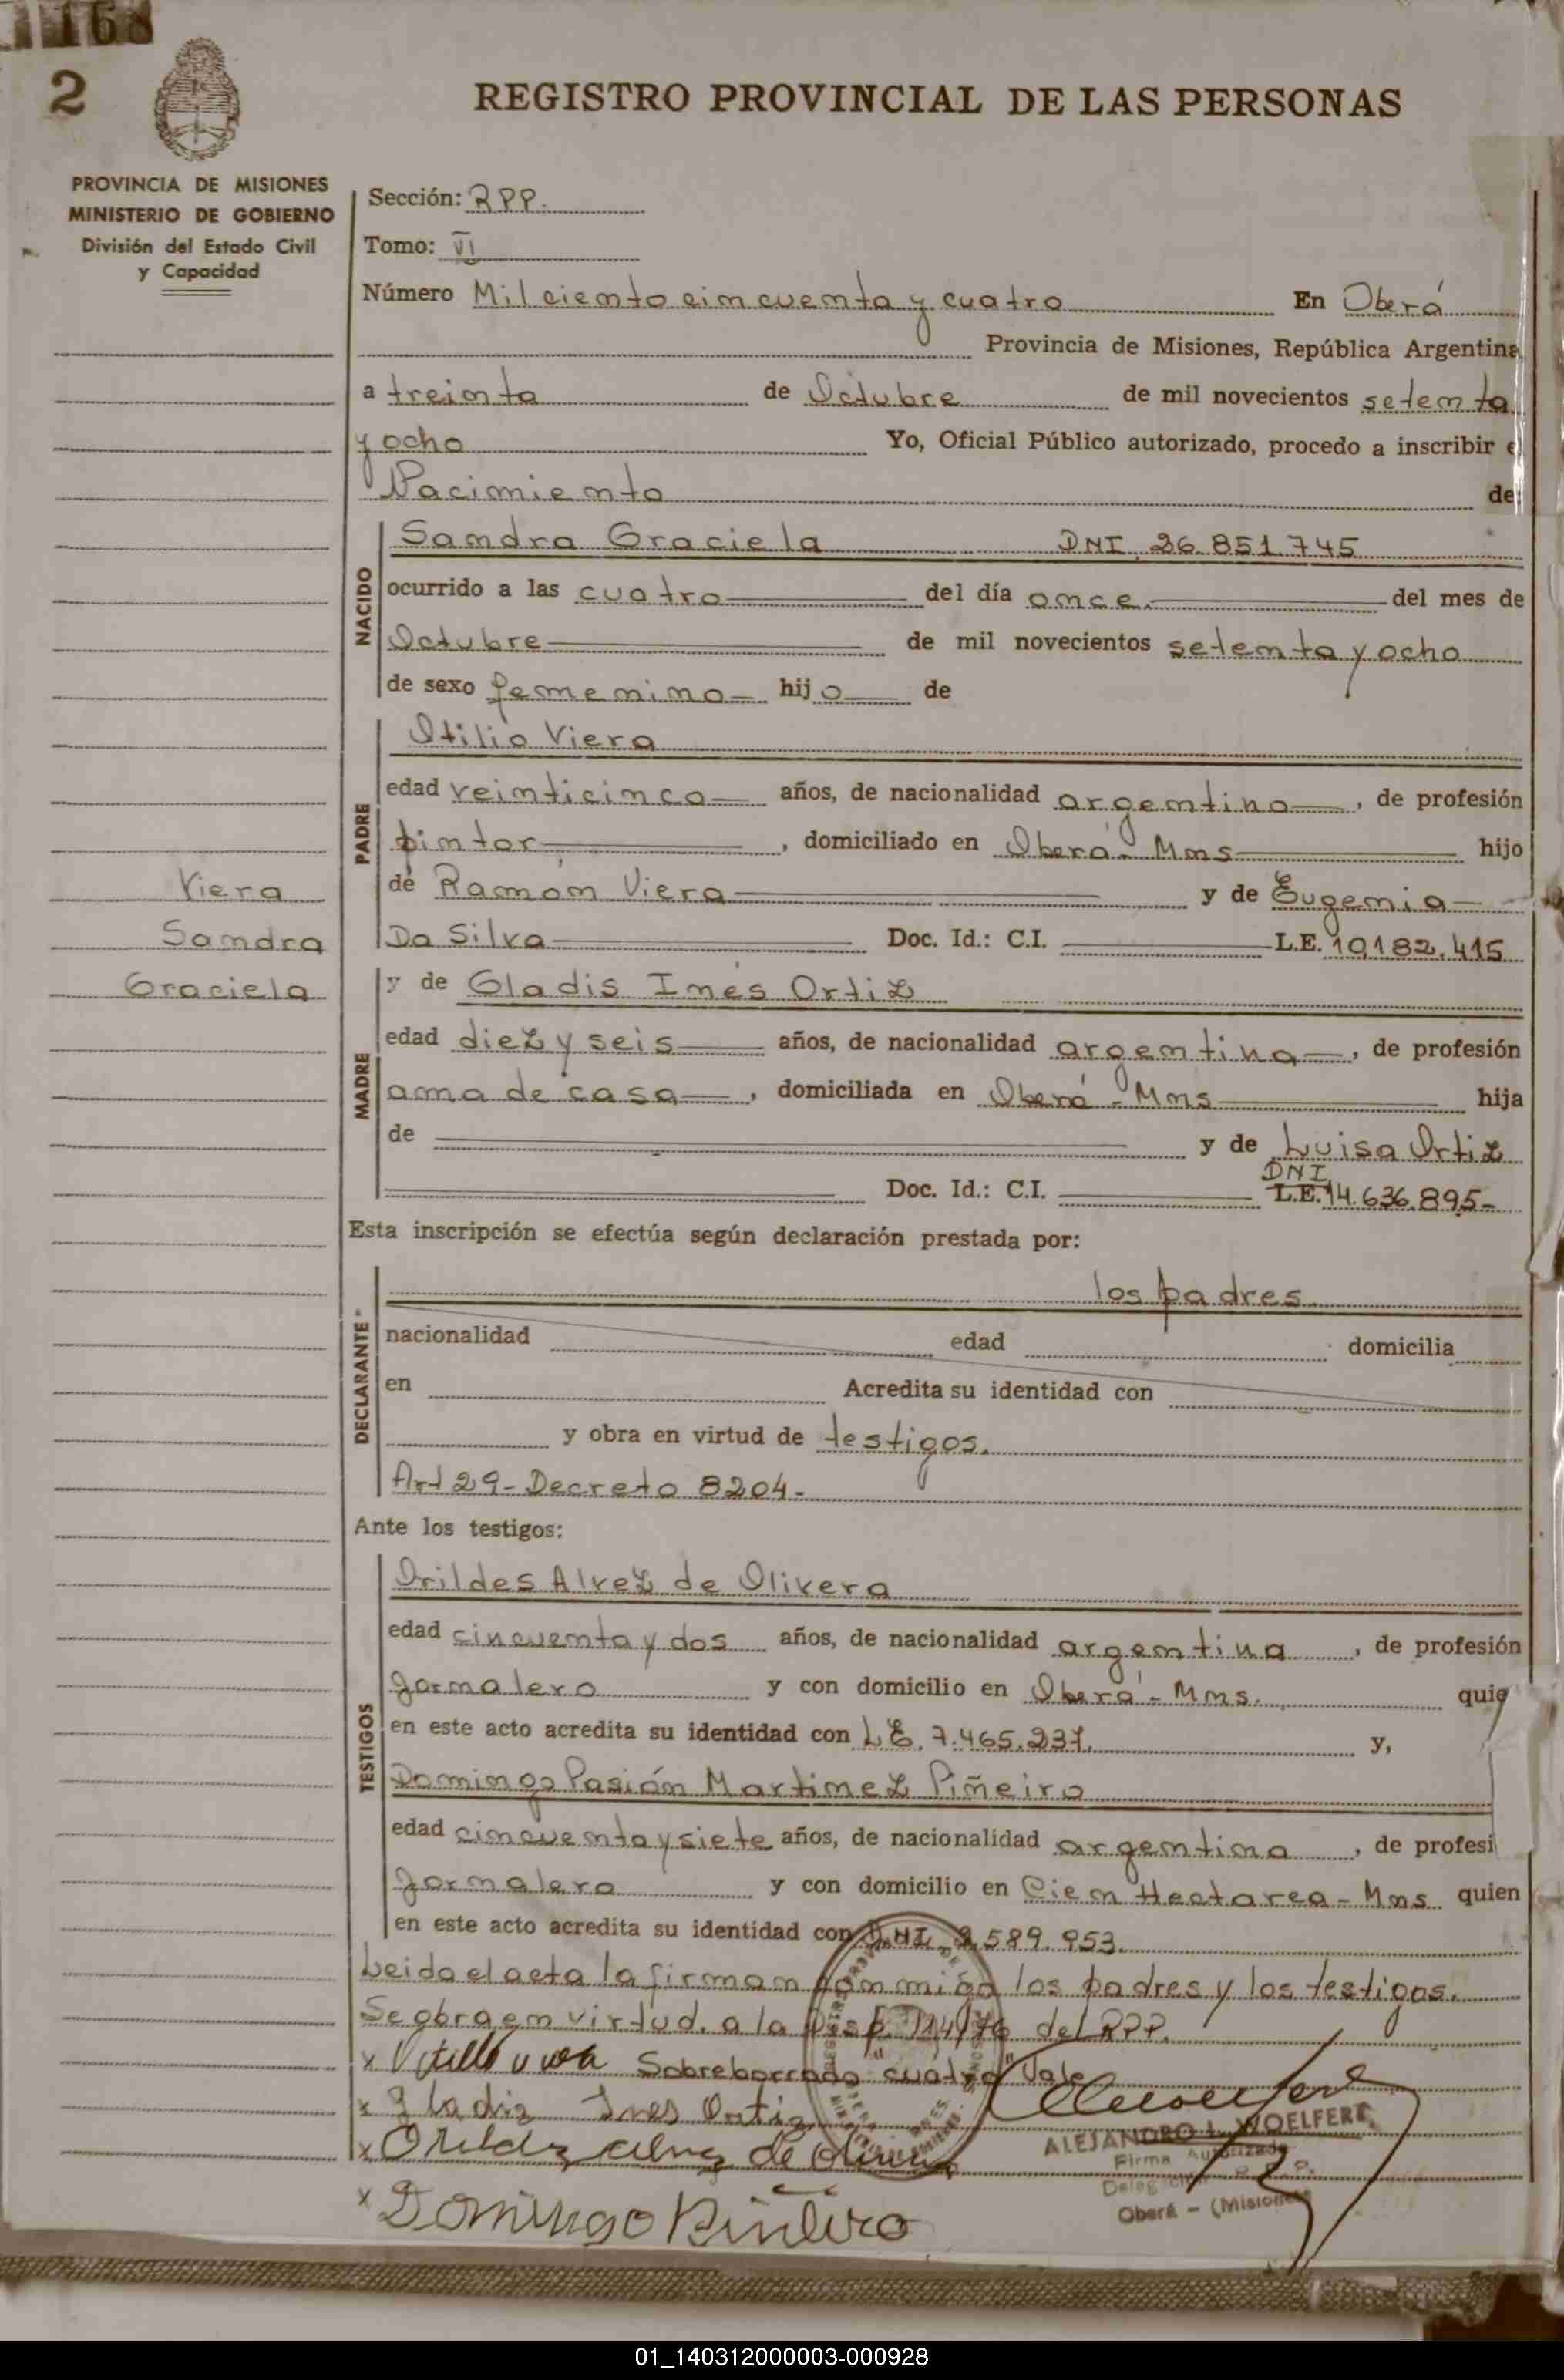 1168
2
REGISTRO PROVINCIAL DE LAS PERSONAS
PROVINCIA DE MISIONES
MINISTERIO DE GOBIERNO
División del Estado Civil
y Capacidad
Sección: RPP.
Tomo: VI
Número Mil ciento cincuenta y cuatro En Oberá
Provincia de Misiones, República Argentina
a treinta de Octubre de mil novecientos setenta
y ocho Yo, Oficial Público autorizado, procedo a inscribir e
Nacimiento de
NACIDO
Sandra Graciela DNI 26.851.745
ocurrido a las cuatro del día once. del mes de
Octubre de mil novecientos setenta y ocho
de sexo femenino hijo de
PADRE
Otilio Viera
edad veinticinco años, de nacionalidad argentino, de profesión
pintor, domiciliado en Oberá - Mns hijo
de Ramón Viera y de Eugenia
Da Silva Doc. Id.: C.I. L.E. 10.182.415
Viera
Sandra
Graciela
MADRE
y de Gladis Inés Ortiz
edad diez y seis años, de nacionalidad argentina, de profesión
ama de casa, domiciliada en Oberá - Mns hija
de y de Luisa Ortiz
DNI
Doc. Id.: C.I. L.E. 14.636.895-
Esta inscripción se efectúa según declaración prestada por:
DECLARANTE
los padres
nacionalidad edad domicilia
en Acredita su identidad con
y obra en virtud de testigos.
Art 29- Decreto 8204-
Ante los testigos:
TESTIGOS
Orildes Alvez de Olivera
edad cincuenta y dos años, de nacionalidad argentina, de profesión
Jornalero y con domicilio en Oberá - Mns. quie
en este acto acredita su identidad con LE. 7.465.237. y,
Domingo Pasión Martinez Piñeiro
edad cincuenta y siete años, de nacionalidad argentina, de profesi
Jornalero y con domicilio en Cien Hectarea - Mns quien
en este acto acredita su identidad con DNI 2.589.953.
Leida el acta la firman conmigo los padres y los testigos.
Se obra en virtud. a la Disp. 114/76 del RPP.
x Otilio viera Sobreborrado "cuatro" Vale
x Gladiz Ines Ortiz
x Orildez alvez de olivera
ALEJANDRO L. WOELFERT
Firma Autorizada
Oberá - (Misiones
x Domingo Piñeiro
01_140312000003-000928